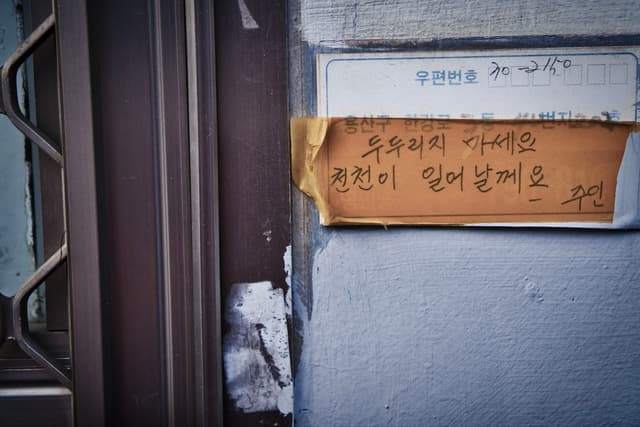 우편번호
용산구 한강로 동 번지 호
두두리지 마세요
천천이 일어날께요 주인